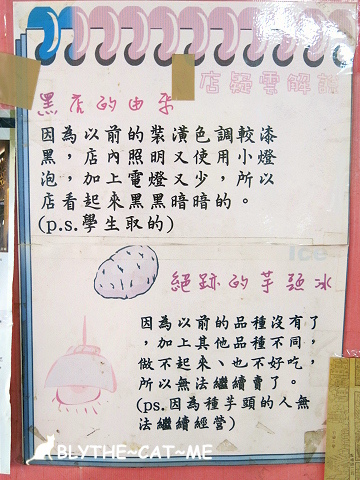 店疑雲解說
黑店的由來
因為以前的裝潢色調較漆
黑，店內照明又使用小燈
泡，加上電燈又少，所以
店看起來黑黑暗暗的。
(p.s.學生取的)
Ice
絕跡的芋頭冰
因為以前的品種沒有了
，加上其他品種不同，
做不起來、也不好吃，
所以無法繼續賣了。
(ps.因為種芋頭的人無
法繼續經營)
BLYTHE~CAT~ME